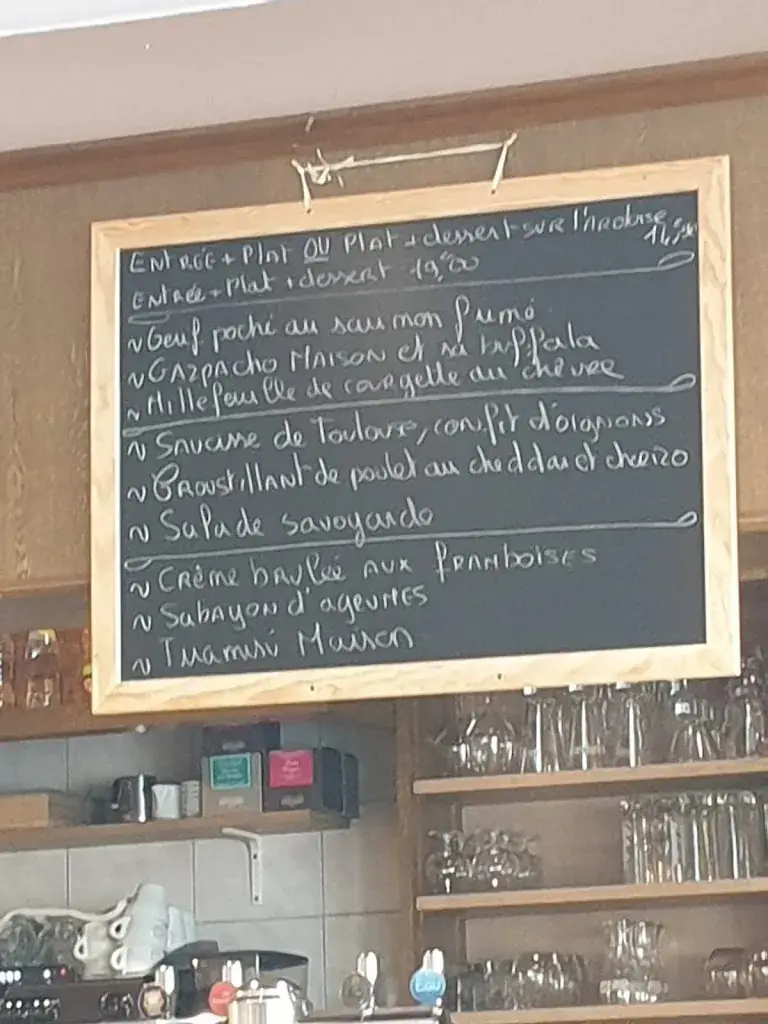 ENTRÉE + PlAt OU PlAt + dessert SUR l'ARdoise
ENTRÉE + Plat + dessert 19,00
~ Oeuf poché au saumon fumé
~ GAZPACHO MAISON et sa buffala
~ Millefeuille de courgette au chèvre
~ SAUCisse de Toulouse, confit d'oignons
~ CROUStillANt de poulet au cheddar et chorizo
~ Salade savoyarde
~ CRÈME brulée AUX fRAMboiSES
~ SAbAYON d'agrumes
~ Tiramisi Maison
EAU